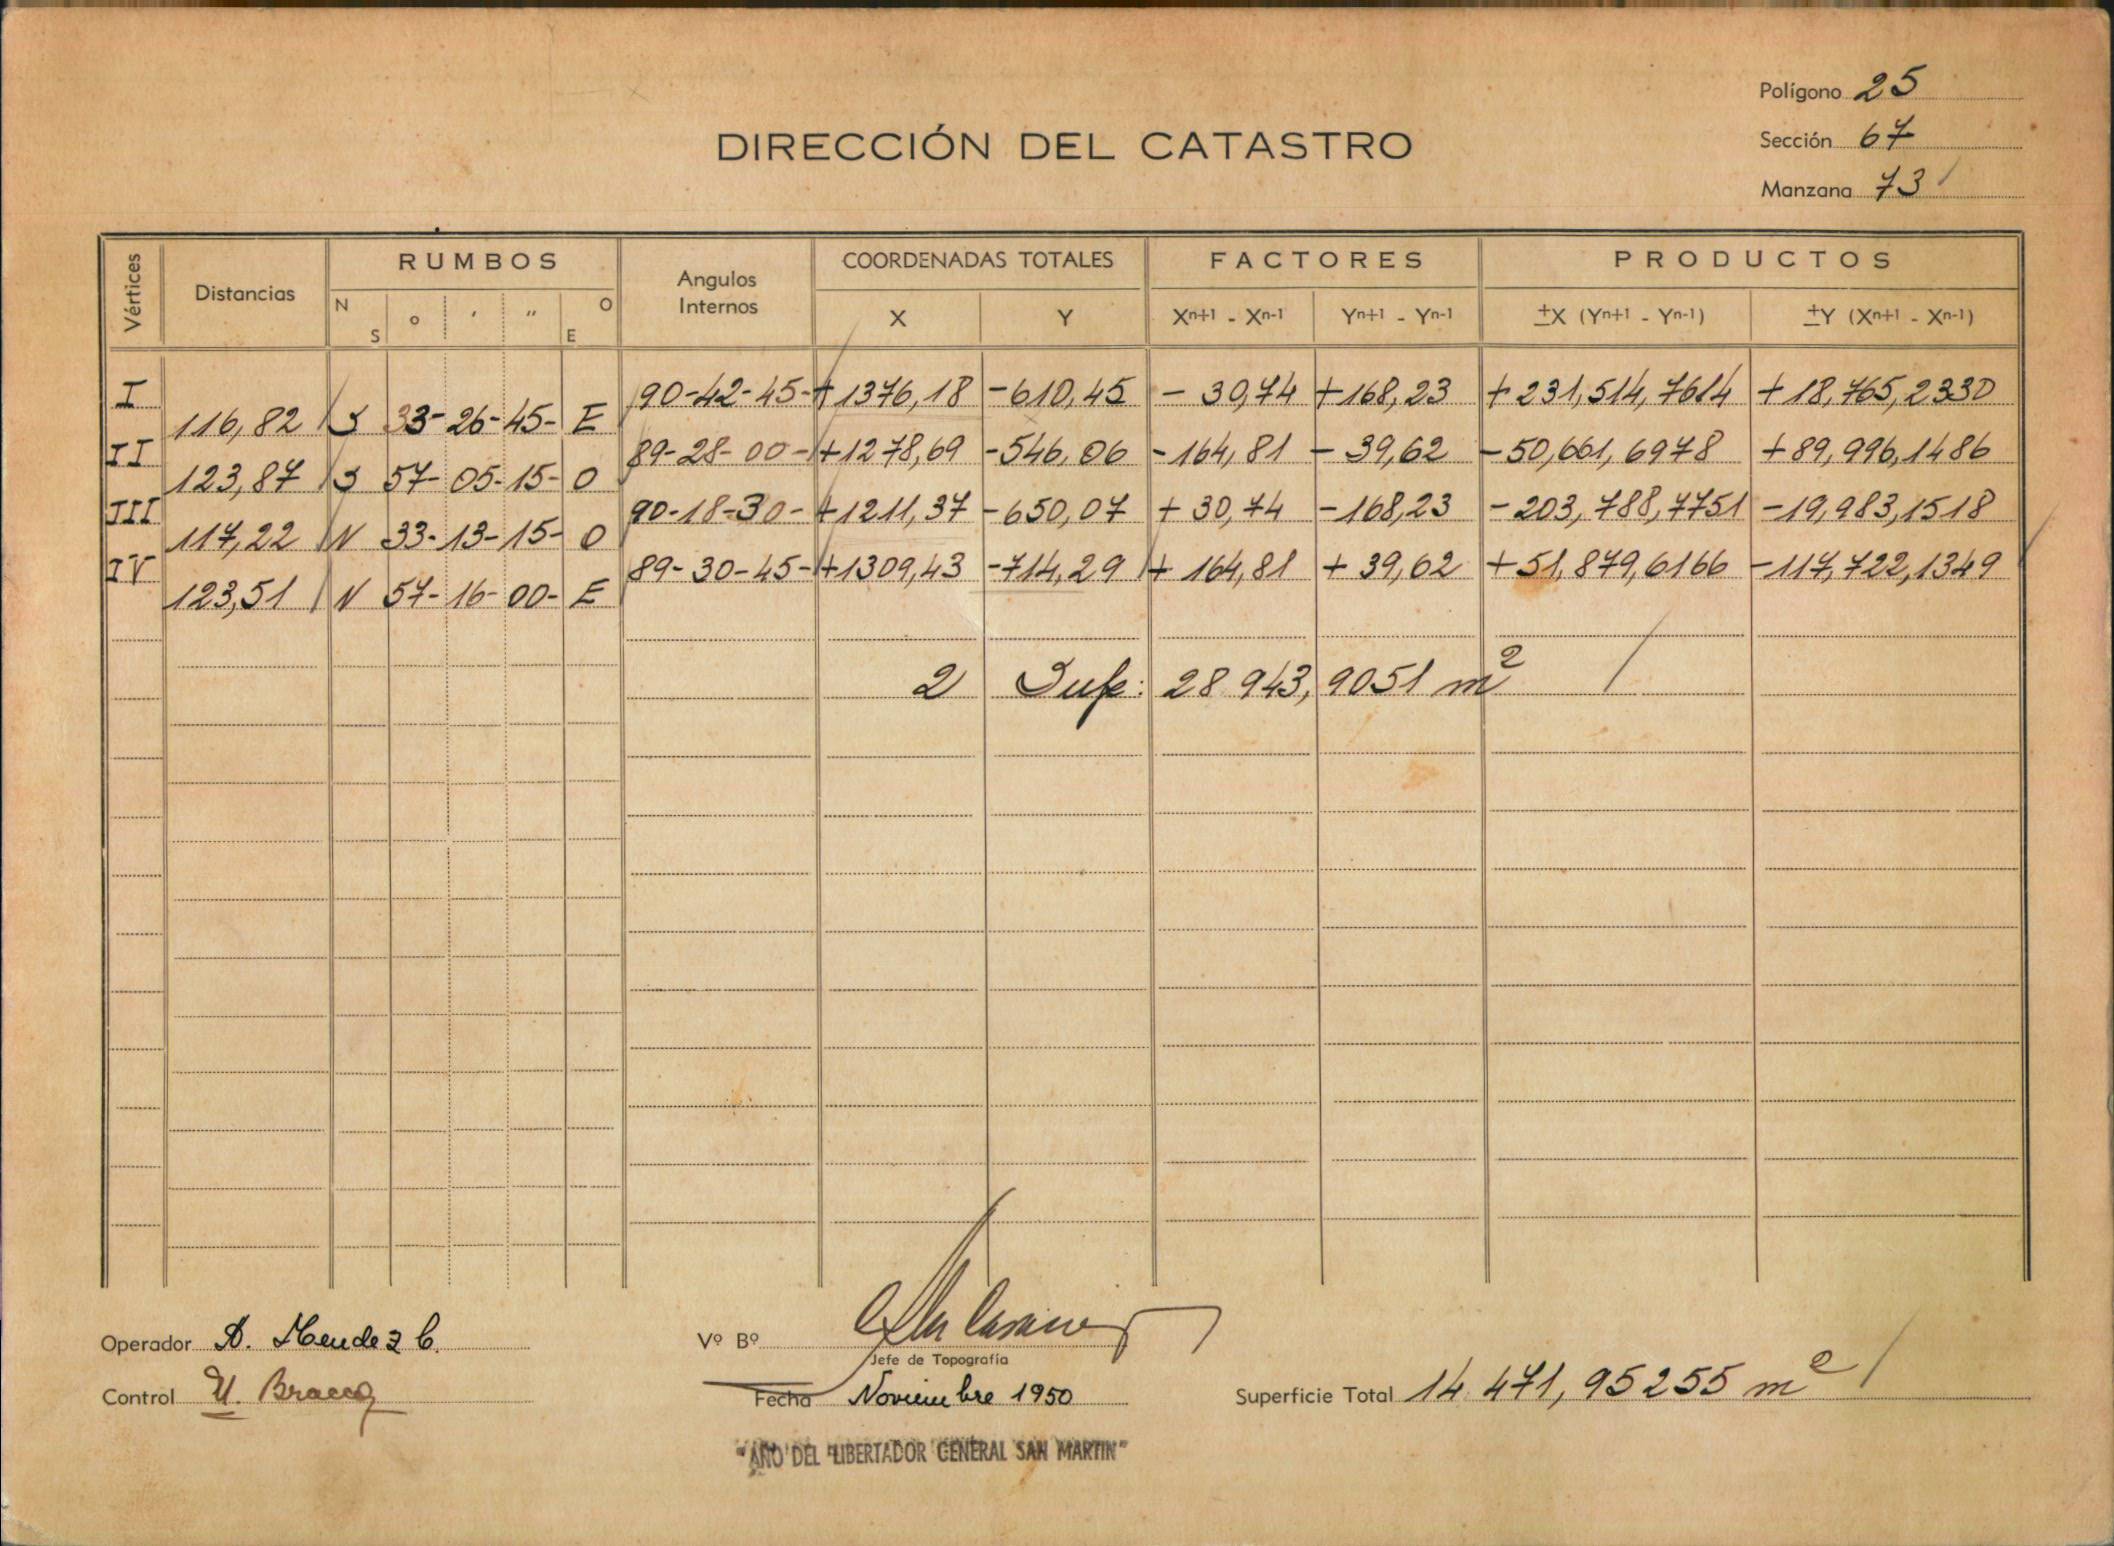 Polígono 25
DIRECCIÓN DEL CATASTRO
Sección 67
Manzana 73
Vértices
Distancias
RUMBOS
N S o ' '' O E
Angulos Internos
COORDENADAS TOTALES
X Y
FACTORES
Xn+1 - Xn-1 Yn+1 - Yn-1
PRODUCTOS
±X (Yn+1 - Yn-1) ±Y (Xn+1 - Xn-1)
I 90-42-45- +1376,18 -610,45 - 30,74 +168,23 +231,514,7614 +18,765,2330
116,82 S 33-26-45- E
II 89-28-00- +1278,69 -546,06 -164,81 - 39,62 -50,661,6978 +89,996,1486
123,87 S 57-05-15- O
III 90-18-30- +1211,37 -650,07 + 30,74 -168,23 -203,788,7751 -19,983,1518
117,22 N 33-13-15- O
IV 89-30-45- +1309,43 -714,29 + 164,81 + 39,62 +51,879,6166 -117,722,1349
123,51 N 57-16-00- E
2 Sup: 28 943,9051 m²
Operador A. Mendez C.
Vº Bº
Jefe de Topografía
Control U. Bracco
Fecha Noviembre 1950
Superficie Total 14 471,95255 m²
"AÑO DEL LIBERTADOR GENERAL SAN MARTIN"